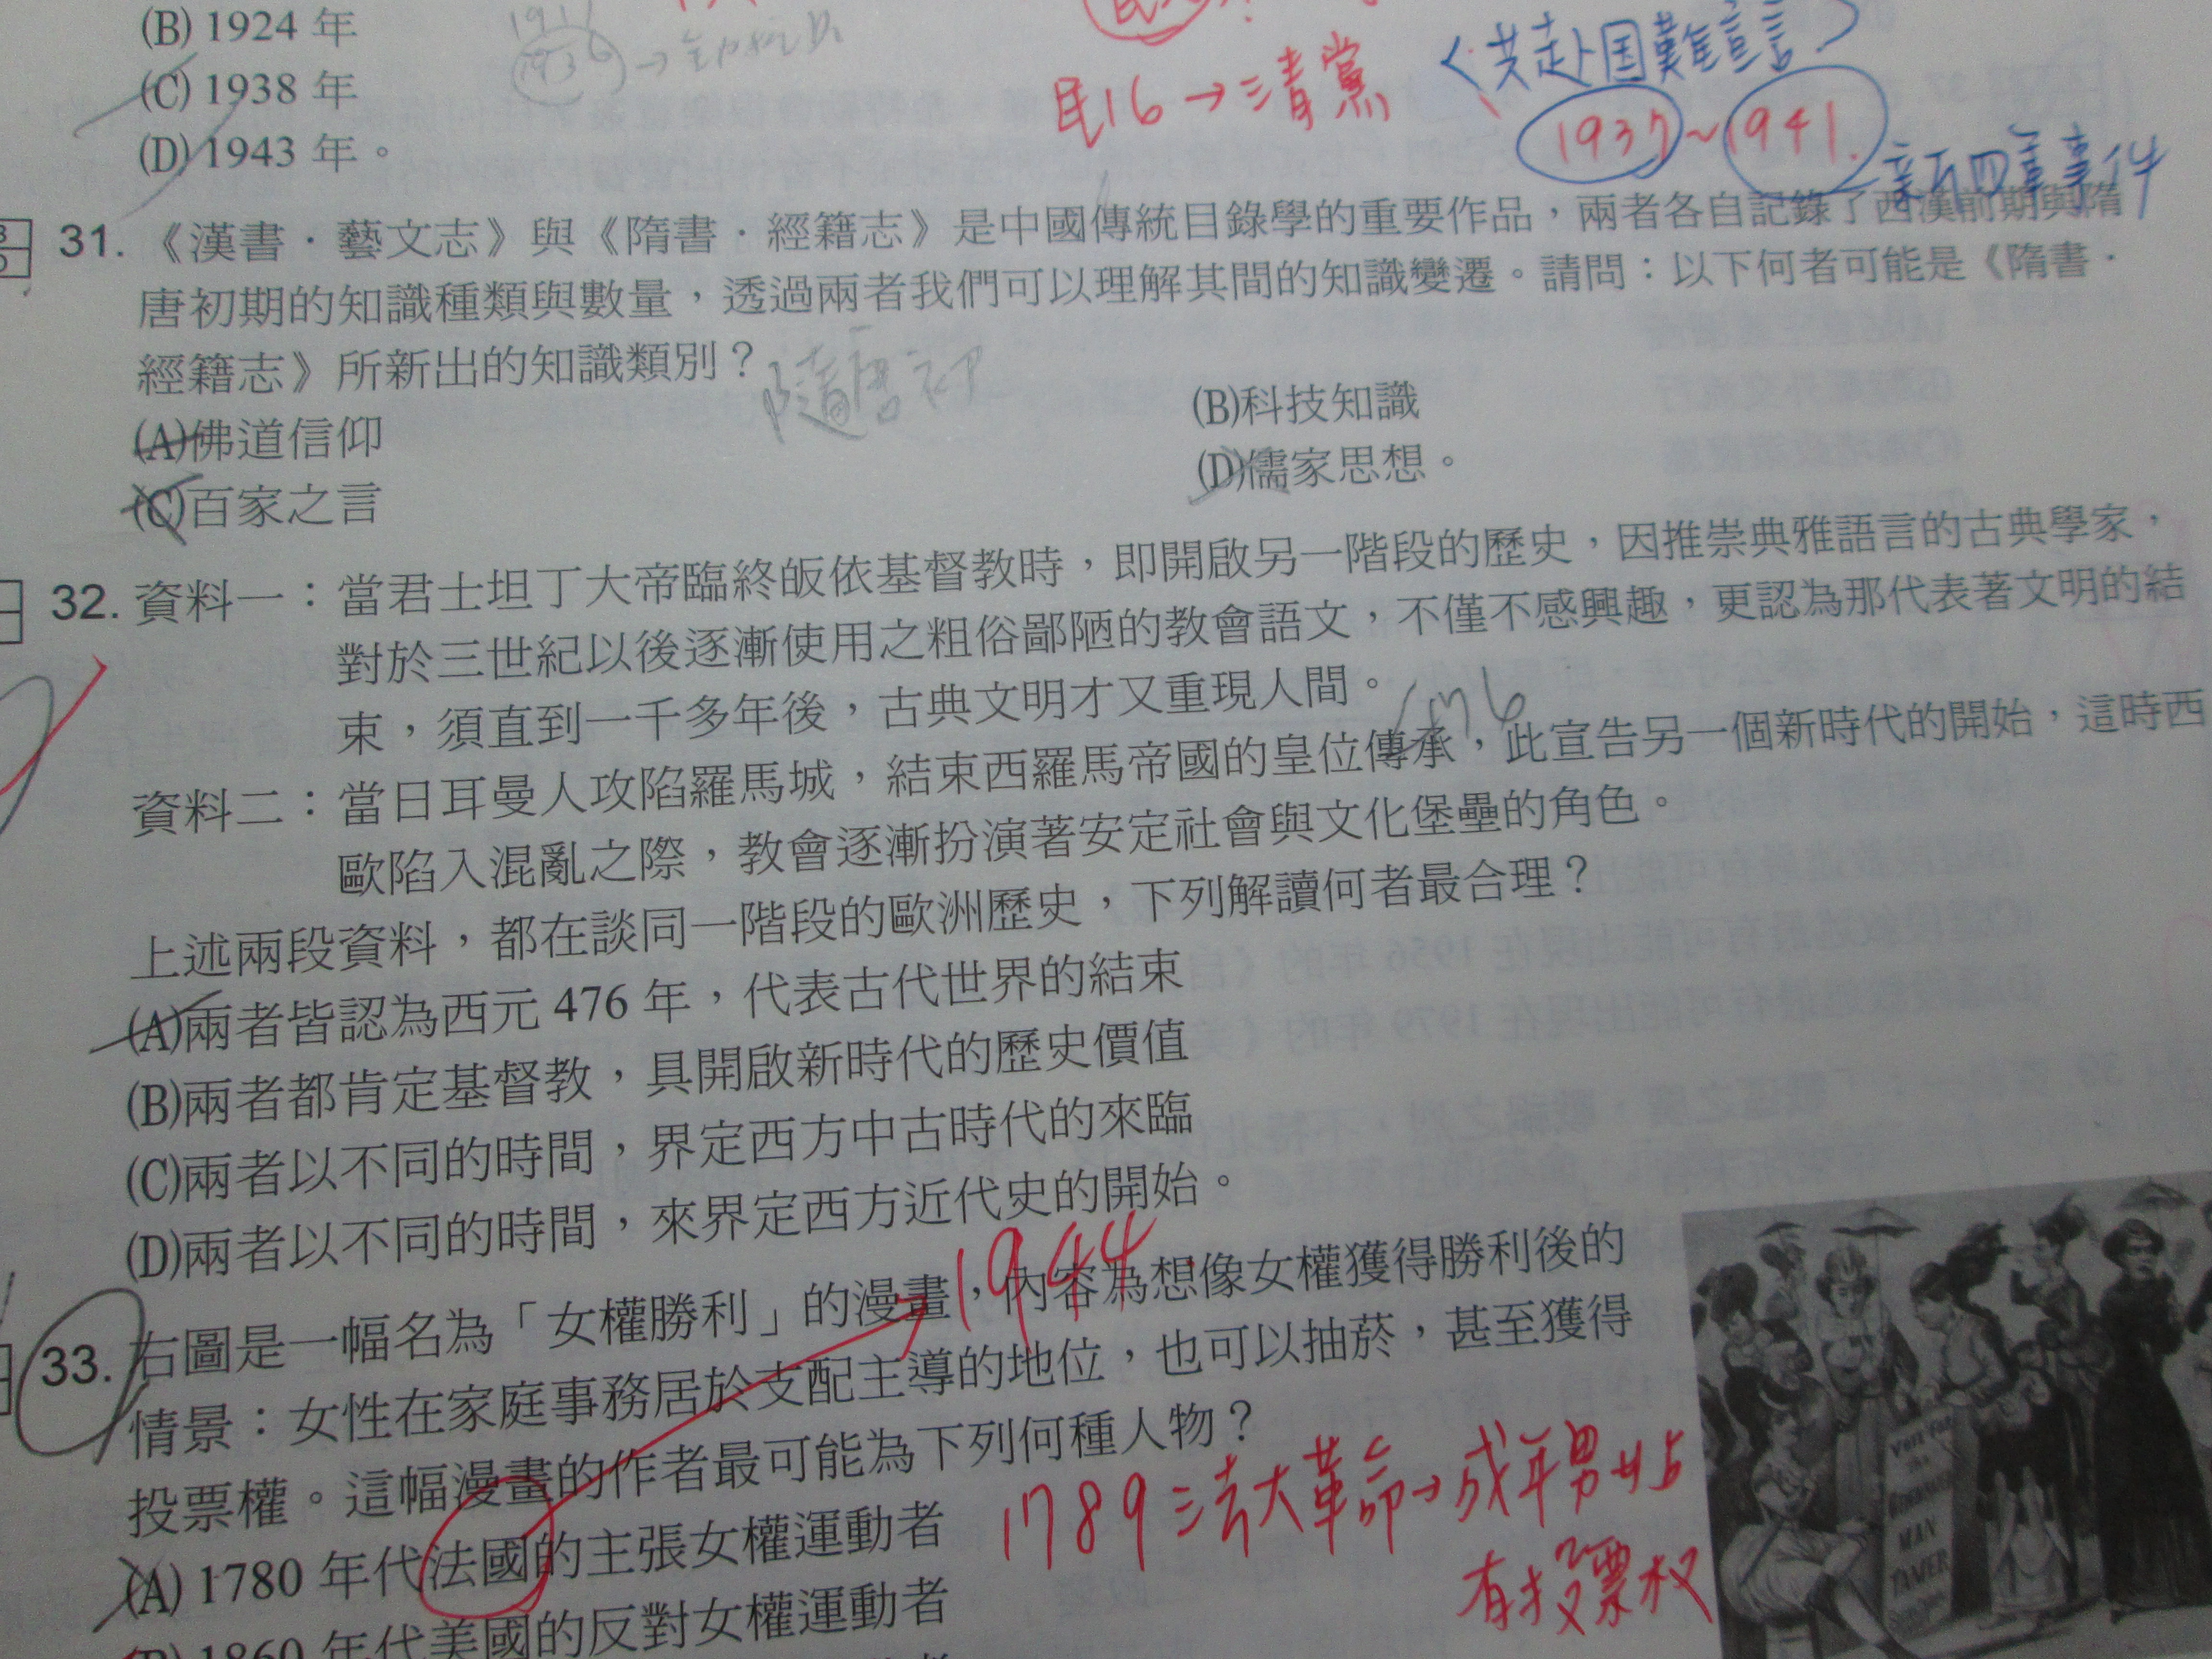 (B) 1924 年
(C) 1938 年
(D) 1943 年。
1911
1936
民16→清黨
〈共赴国難宣言〉
1937~1941
新四軍事件
31. 《漢書．藝文志》與《隋書．經籍志》是中國傳統目錄學的重要作品，兩者各自記錄了西漢前期與隋
唐初期的知識種類與數量，透過兩者我們可以理解其間的知識變遷。請問：以下何者可能是《隋書．
經籍志》所新出的知識類別？
隋唐初
(A)佛道信仰
(B)科技知識
(C)百家之言
(D)儒家思想。
32. 資料一：當君士坦丁大帝臨終皈依基督教時，即開啟另一階段的歷史，因推崇典雅語言的古典學家，
對於三世紀以後逐漸使用之粗俗鄙陋的教會語文，不僅不感興趣，更認為那代表著文明的結
束，須直到一千多年後，古典文明才又重現人間。
476
資料二：當日耳曼人攻陷羅馬城，結束西羅馬帝國的皇位傳承，此宣告另一個新時代的開始，這時西
歐陷入混亂之際，教會逐漸扮演著安定社會與文化堡壘的角色。
上述兩段資料，都在談同一階段的歐洲歷史，下列解讀何者最合理？
(A)兩者皆認為西元 476 年，代表古代世界的結束
(B)兩者都肯定基督教，具開啟新時代的歷史價值
(C)兩者以不同的時間，界定西方中古時代的來臨
(D)兩者以不同的時間，來界定西方近代史的開始。
1944
33. 右圖是一幅名為「女權勝利」的漫畫，內容為想像女權獲得勝利後的
情景：女性在家庭事務居於支配主導的地位，也可以抽菸，甚至獲得
投票權。這幅漫畫的作者最可能為下列何種人物？
(A) 1780 年代法國的主張女權運動者
1789 法大革命→成年男性
有投票权
(B) 1860 年代美國的反對女權運動者
VOTE FOR
MAN
TAMER